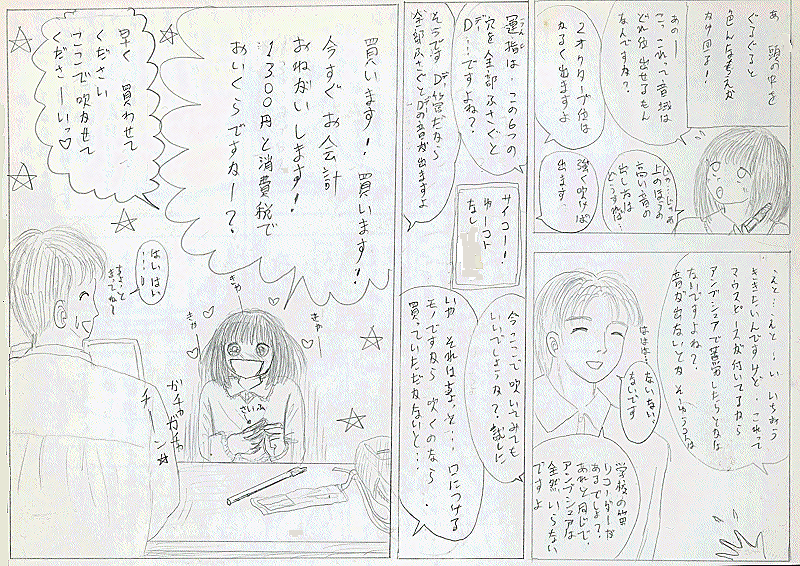 あ、頭の中を
ぐるぐると
色んな考えが
かけ回る!
あのー
こっこれって音域は
どれ位出せるもん
なんですか?
2オクターブ位は
かるく出ますよ
じゃ、じゃあ
上のほうの
高い音の
出し方は
どうすれば…
強く吹けば
出ます。
えと…えと…い、いちおう
ききたいんですけど、これって
マウスピースが付いてるから
アンブシュアで苦労したりとかは
ないですよね?
音が出ないとか そーゆうのは
ははは…ないない、
ないです
学校の笛
リコーダーが
あるでしょ?
あれと同じで、
アンブシュアは
全然いらない
ですよ
運指は この6つの
穴を全部ふさぐと
D…ですよね?
そうです D管だから
全部ふさぐとDの音が出ますよ
サイコー!
ゆーコト
なし
今ここで吹いてみても
いいでしょうか?試しに
いや それはちょっと…口につける
モノですから 吹くのなら
買っていただかないと…
買います!買います!
今すぐお会計
おねがいします!
1300円と消費税で
おいくらですかー?
早く 買わせて
ください
ここで吹かせて
くださーいっ♡
はいはい
…
ちょっと
まってね〜
きゃー
きゃー
きゃー
さいふ
ガチャガチャ
チーン☆